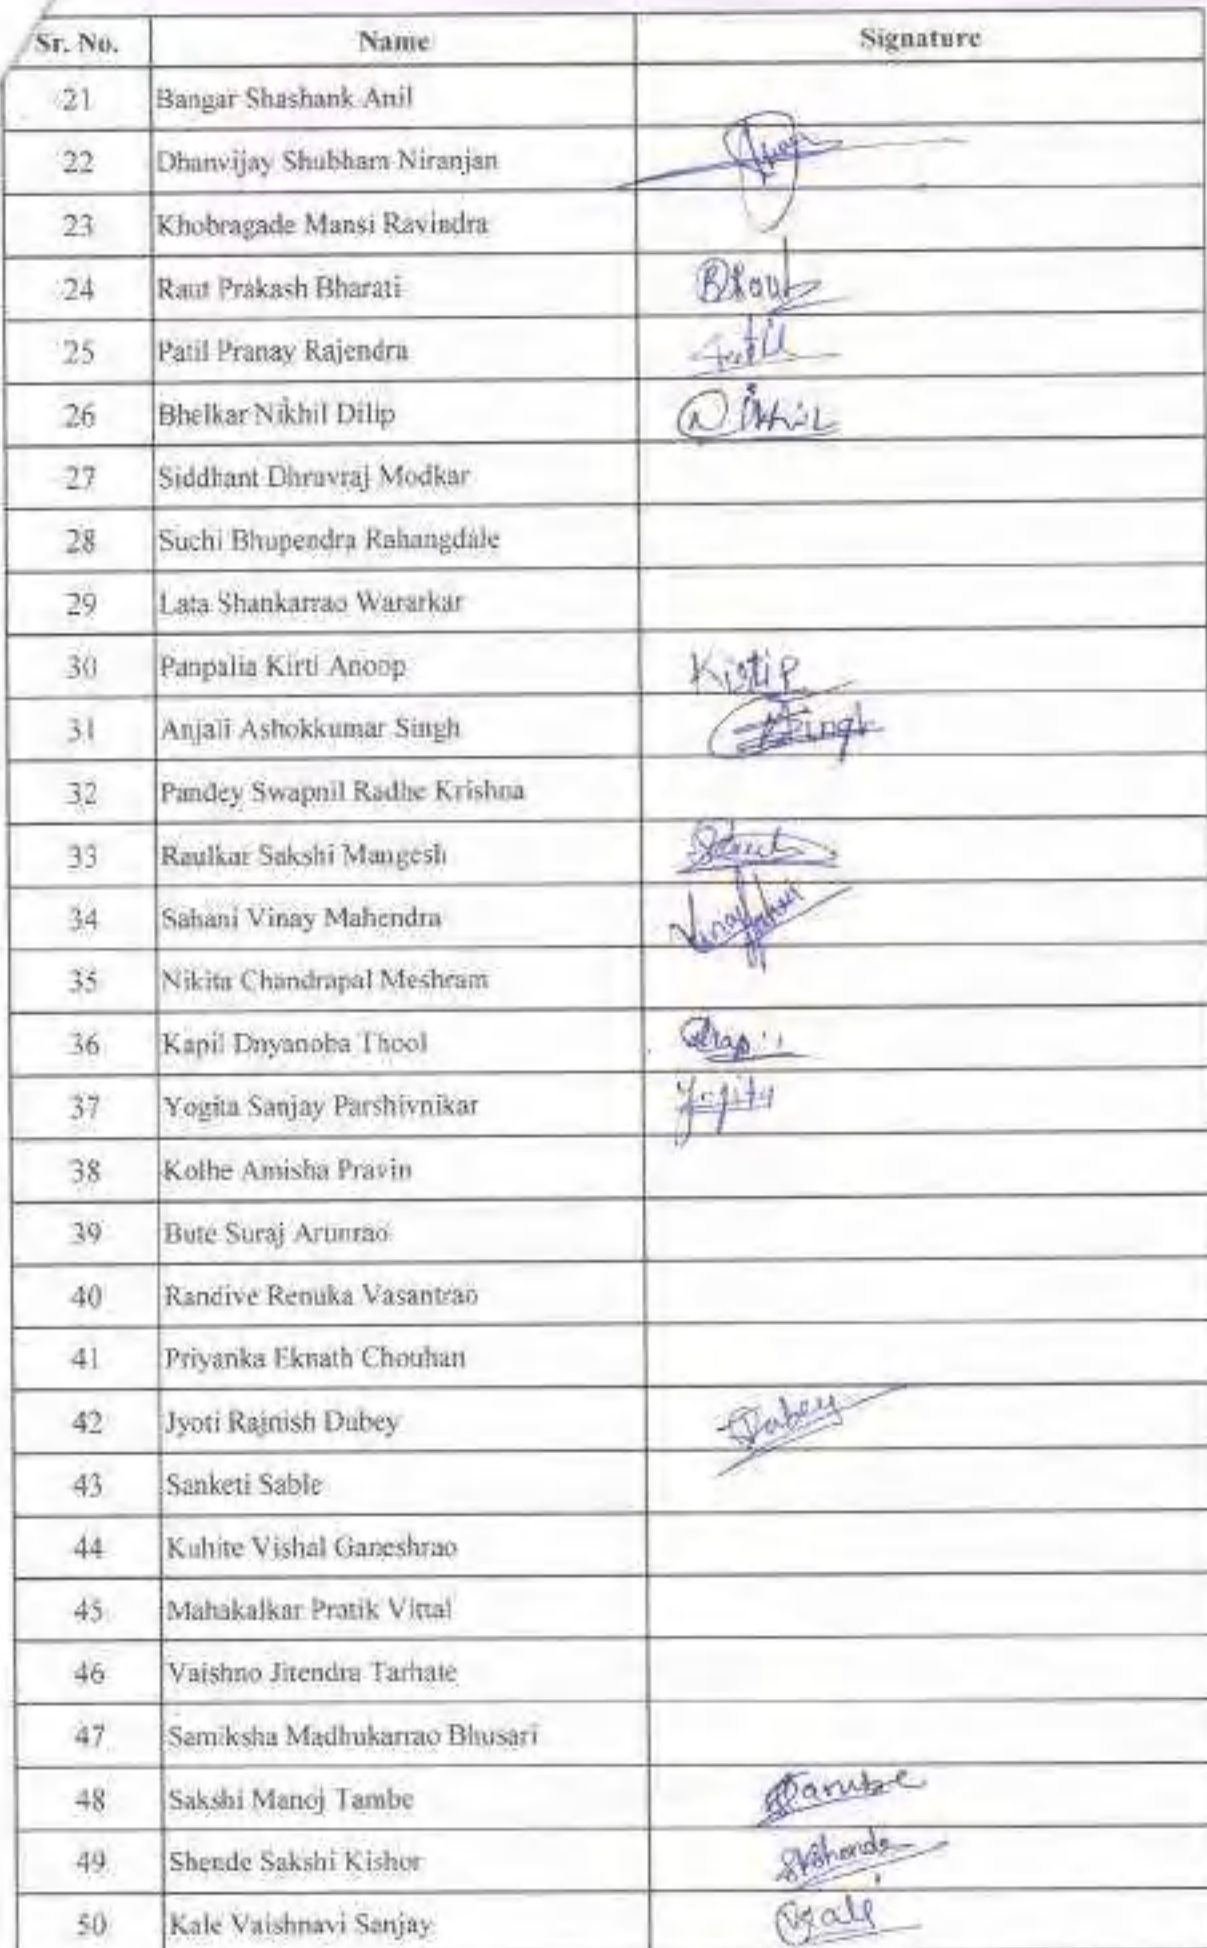 Sr. No. Name Signature
21 Bangar Shashank Anil
22 Dhanvijay Shubham Niranjan
23 Khobragade Mansi Ravindra
24 Raut Prakash Bharati
25 Patil Pranay Rajendra
26 Bhelkar Nikhil Dilip Nikhil
27 Siddhant Dhruvraj Modkar
28 Suchi Bhupendra Rahangdale
29 Lata Shankarrao Wararkar
30 Panpalia Kirti Anoop KirtiP
31 Anjali Ashokkumar Singh Singh
32 Pandey Swapnil Radhe Krishna
33 Raulkar Sakshi Mangesh
34 Sahani Vinay Mahendra
35 Nikita Chandrapal Meshram
36 Kapil Dnyanoba Thool
37 Yogita Sanjay Parshivnikar Yogita
38 Kolhe Amisha Pravin
39 Bute Suraj Arunrao
40 Randive Renuka Vasantrao
41 Priyanka Eknath Chouhan
42 Jyoti Rajnish Dubey Dubey
43 Sanketi Sable
44 Kuhite Vishal Ganeshrao
45 Mahakalkar Pratik Vittal
46 Vaishno Jitendra Tarhate
47 Samiksha Madhukarrao Bhusari
48 Sakshi Manoj Tambe
49 Shende Sakshi Kishor
50 Kale Vaishnavi Sanjay